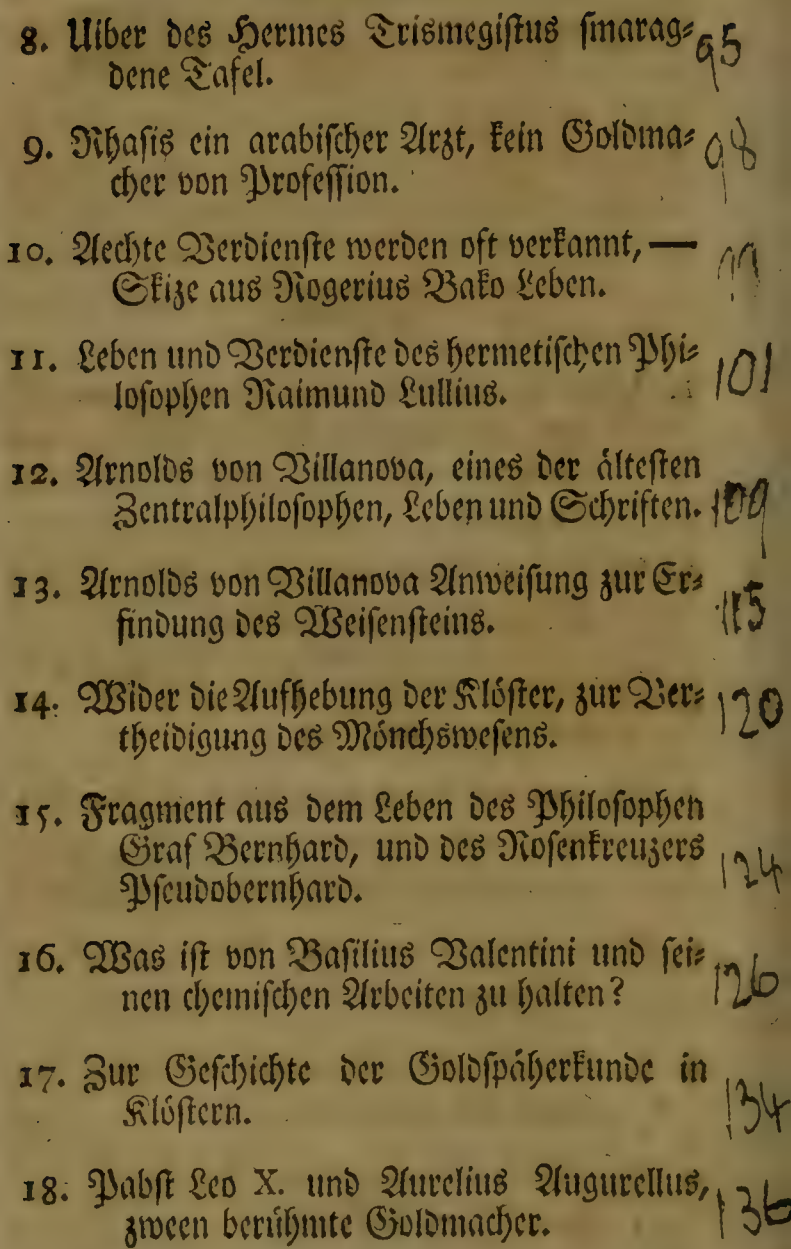 8. Uiber des Hermes Trismegistus smarag= 95
dene Tafel.
9. Rhasis ein arabischer Arzt, kein Goldma= 98
cher von Profession.
10. Aechte Verdienste werden oft verkannt, — 99
Skize aus Rogerius Bako Leben.
11. Leben und Verdienste des hermetischen Phi= 101
losophen Raimund Lullius.
12. Arnolds von Villanova, eines der ältesten
Zentralphilosophen, Leben und Schriften. 109
13. Arnolds von Villanova Anweisung zur Er= 115
findung des Weisensteins.
14. Wider die Aufhebung der Klöster, zur Ver= 120
theidigung des Mönchswesens.
15. Fragment aus dem Leben des Philosophen
Graf Bernhard, und des Rosenkreuzers 124
Pseudobernhard.
16. Was ist von Basilius Valentini und sei= 126
nen chemischen Arbeiten zu halten?
17. Zur Geschichte der Goldspäherkunde in 134
Klöstern.
18. Pabst Leo X. und Aurelius Augurellus, 136
zween berühmte Goldmacher.